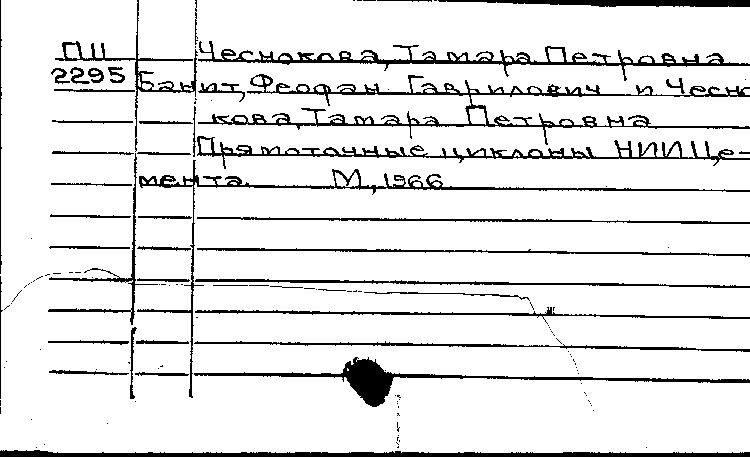 ПШ Чеснокова, Тамара Петровна
2295 Банит, Феофан Гаврилович и Чесно
кова, Тамара Петровна
Прямоточные циклоны НИИЦе-
мента. М., 1966